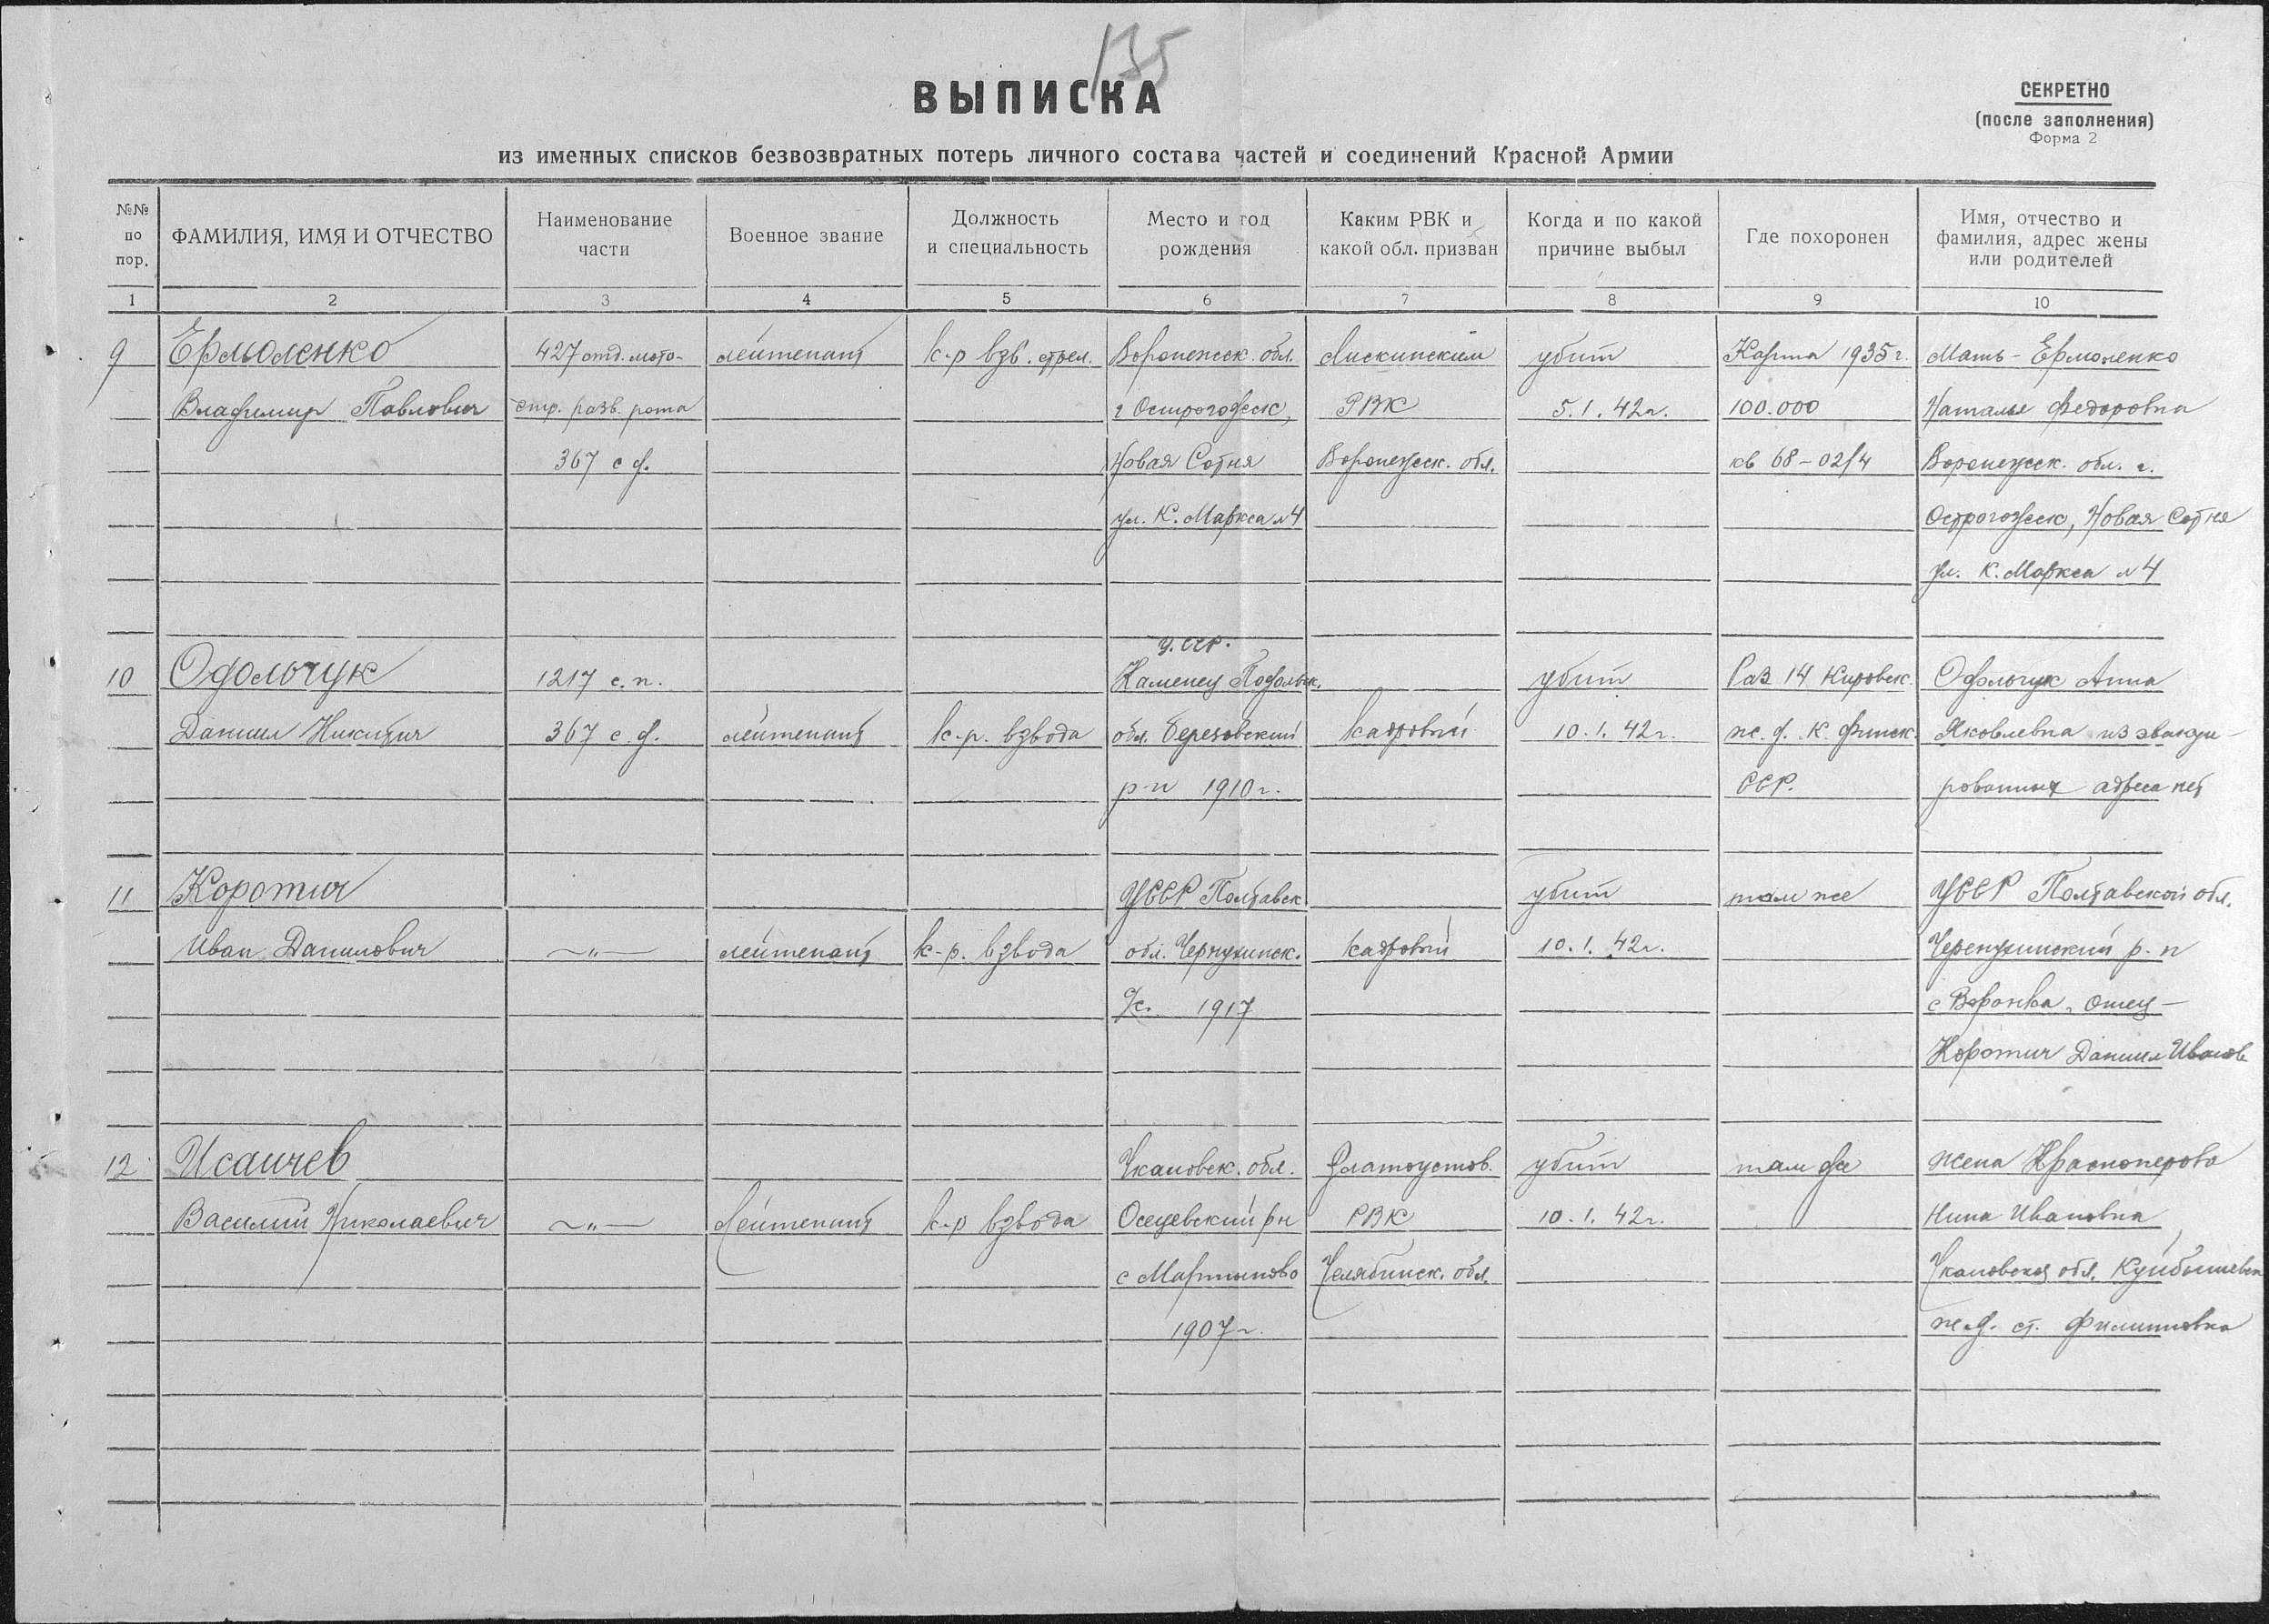 135
ВЫПИСКА
СЕКРЕТНО
(после заполнения)
Форма 2
из именных списков безвозвратных потерь личного состава частей и соединений Красной Армии
№№ по пор.
ФАМИЛИЯ, ИМЯ И ОТЧЕСТВО
Наименование части
Военное звание
Должность и специальность
Место и год рождения
Каким РВК и какой обл. призван
Когда и по какой причине выбыл
Где похоронен
Имя, отчество и фамилия, адрес жены или родителей
1 2 3 4 5 6 7 8 9 10
9 Ермоленко 427 отд. мото- лейтенант к-р взв. стрел. Воронежск. обл. Лискинским убит Карта 1935 г. Мать - Ермоленко
Владимир Павлович стр. разв. рота г Острогожск, РВК 5.1.42г. 100.000 Наталья Федоровна
367 с д. Новая Сотня Воронежск. обл. кв 68-02/4 Воронежск. обл. г.
ул. К. Маркса №4 Острогожск, Новая Сотня
ул. К. Маркса №4
У.ССР.
10 Одольчук 1217 с.п. Каменец Подольск. убит Раз 14 Кировск. Одольчук Анна
Даниил Никитич 367 с.д. лейтенант к-р. взвода обл. Березовский кадровый 10.1.42г. ж.д. К. Финск. Яковлевна из эвакуи-
р-н 1910г. ССР. рованных адреса нет
11 Коротич УССР Полтавск убит там же УССР Полтавской обл.
Иван Данилович —"— лейтенант к-р. взвода обл. Чернухинск. кадровый 10.1.42г. Черепухинский р-н
1917 с Воронка, отец -
Коротич Даниил Иванов
12 Исаичев Чкаловск. обл. Златоустов. убит там же жена Красноперова
Василий Николаевич —"— Лейтенант к-р взвода рн РВК 10.1.42г. Нина Ивановна
с Мартыново Челябинск. обл. Чкаловская обл. Куйбышевск
1907г. ж.д. ст. Филипповка